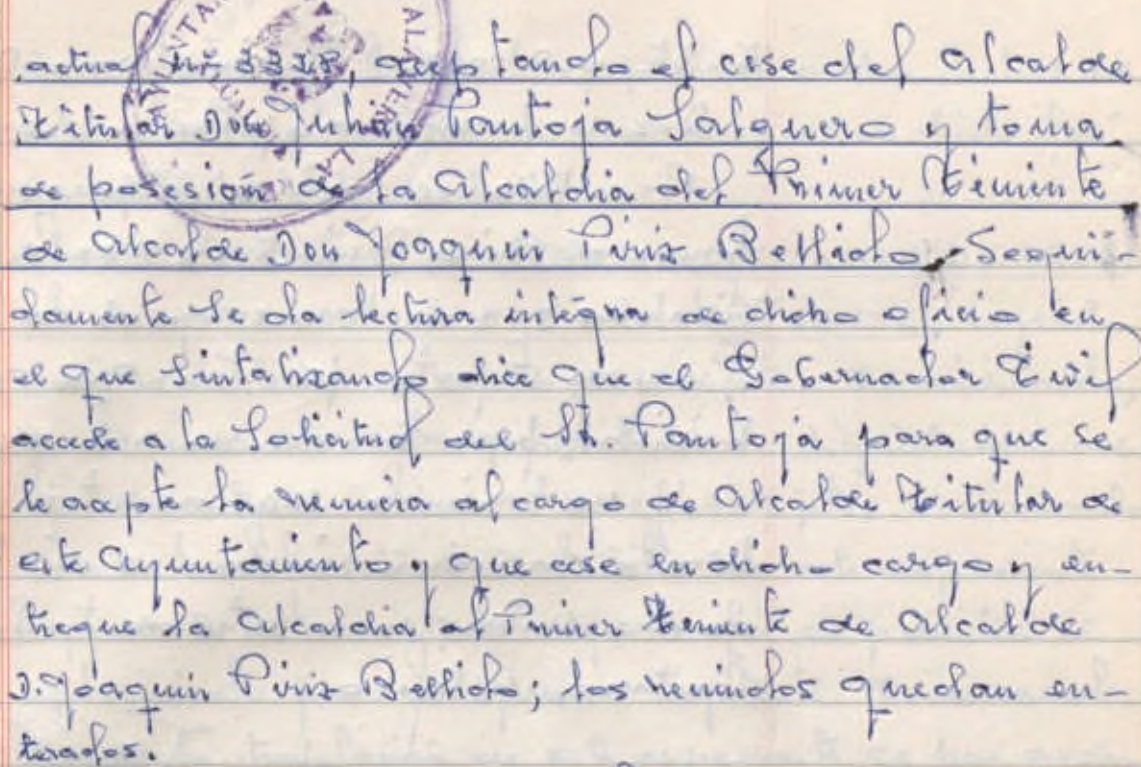 actual nº 3318, aceptando el cese del Alcalde
Titular Don Julián Pantoja Salguero y toma
de posesión de la Alcaldia del Primer Teniente
de Alcalde Don Joaquin Piriz Bellido. Segui-
damente se da lectura integra de dicho oficio en
el que sintatizando dice que el Gobernador Civil
accede a la solicitud del Sr. Pantoja para que se
le acepte la renuncia al cargo de Alcalde Titular de
este Ayuntamiento y que cese en dicho cargo y en-
tregue la Alcaldia al Primer Teniente de Alcalde
D. Joaquin Piriz Bellido; los reunidos quedan en-
terados.